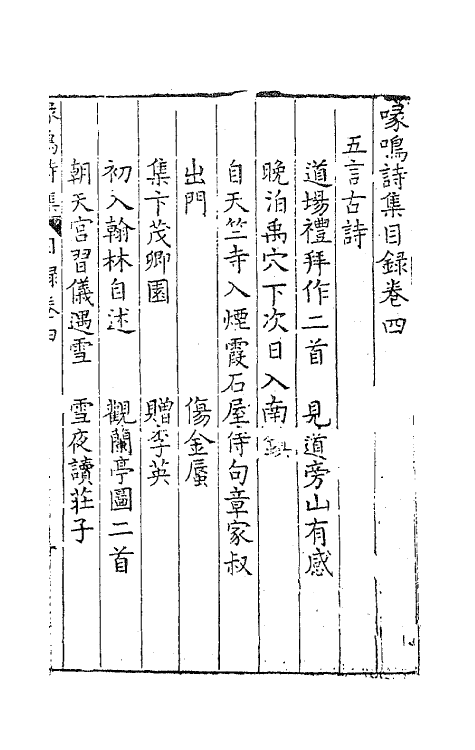 喙鳴詩集目録卷四
五言古詩
道塲禮拜作二首　見道旁山有感
晚泊禹穴下次日入南
自天竺寺入煙霞石屋侍句章家叔
出門　傷金蜃
集卞茂卿園　贈李英
初入翰林自述　觀蘭亭圖二首
朝天宮習儀遇雪　雪夜讀莊子
喙鳴詩集　目録卷四